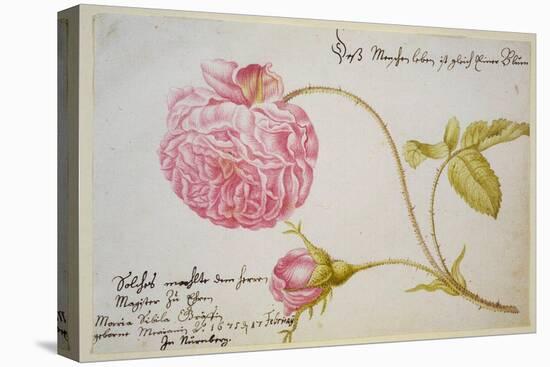 Deß Menschen leben ist gleich Einer Blum
Solches mahlte dem herrn
Magister Zu Ehren
Maria Sibila Gräffin
geborne Merianin Ao 1675 d 17 Februar
In Nürnberg.